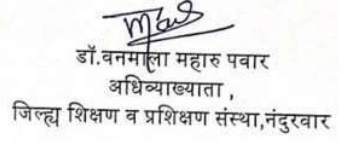 डॉ.वनमाला महारु पवार
अधिव्याख्याता ,
जिल्ह्य शिक्षण व प्रशिक्षण संस्था,नंदुरवार